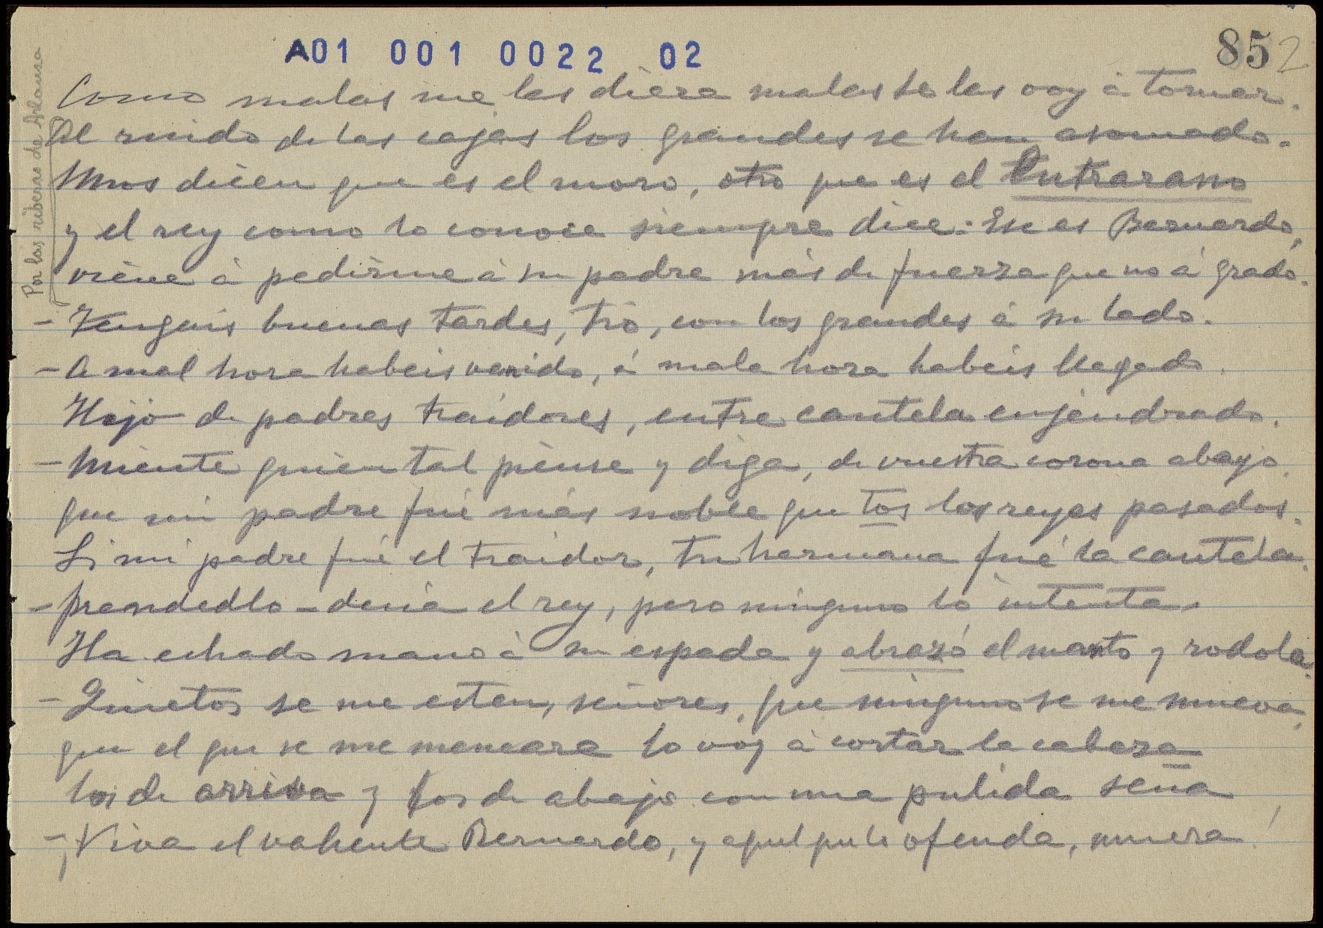 A01 001 0022 02
85 2
Por las riberas de Arlanza
Como malas me las diera malas te las voy á tomar.
Al ruido de las cajas los grandes se han asomado.
Unos dicen que es el moro, otro que es el Entrarano
y el rey como lo conoce siempre dice: Ese es Bernardo,
viene á pedirme á su padre más de fuerza que no á grado.
- Tengais buenas tardes, tío, con los grandes á su lado.
- A mal hora habeis venido, á mala hora habeis llegado.
Hijo de padres traidores, entre cautela enjendrado.
- Miente quien tal piense y diga, de vuestra corona abajo,
que mi padre fué más noble que tos los reyes pasados.
Si mi padre fué el traidor, tu hermana fué la cautela.
- Prendedlo - decía el rey, pero ninguno lo intenta.
Ha echado mano á su espada y abrazó el manto y rodela.
- Quietos se me esten, señores, que ninguno se me mueva,
que el que se me meneara lo voy á cortar la cabeza
los de arriba y los de abajo con una pulida seña
- ¡Viva el valiente Bernardo, y aquel que le ofenda, muera!